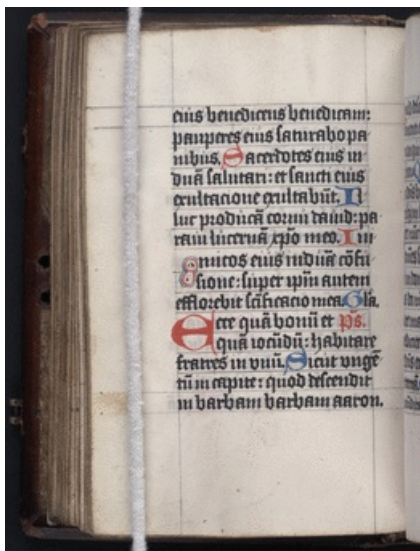 eius benedicens benedicam:
pauperes eius saturabo pa
nibus. Sacerdotes eius in
duā salutari: et sancti eius
exultacione exultabūt. Il
luc producā cornu dauid: pa
raui lucernā xpō meo. Inı
micos eius induā cōfu
sione: super ipm̄ autem
efflorebit sc̄ificacio mea. Gl̄a.
Ecce quā bonū et p̄s.
quā iocūdū: habitare
fratres in vnū. Sicut vnge
tū in capite: quod descendit
in barbam barbam aaron.